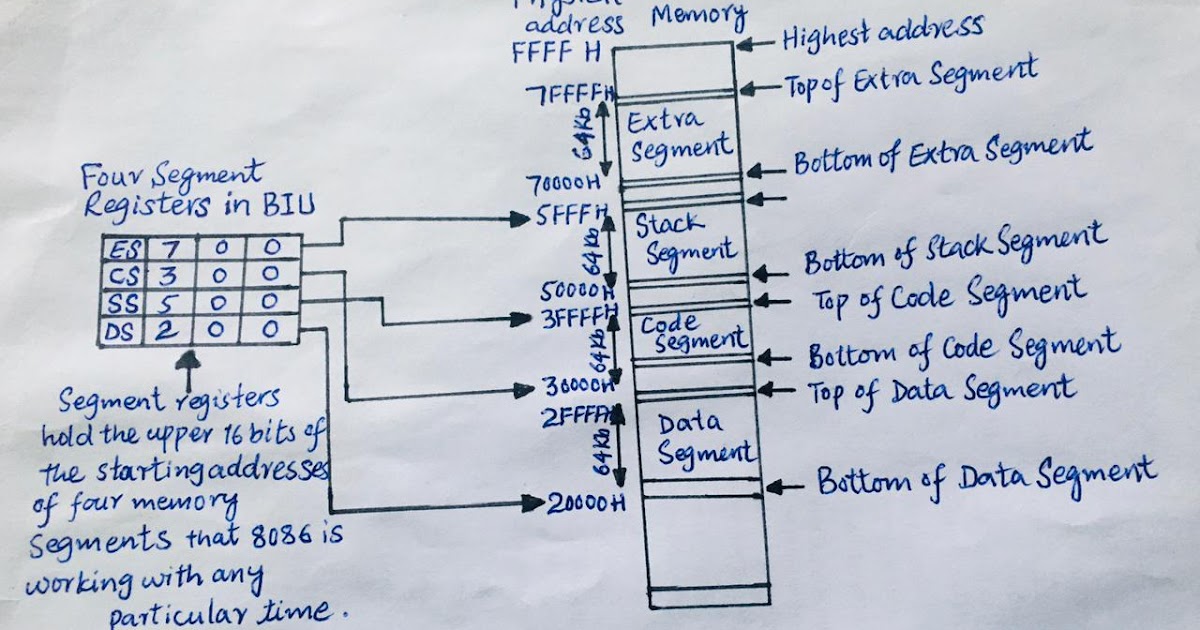 address
Memory
FFFF H
Highest address
7FFFFH
Top of Extra Segment
64Kb
Extra
Segment
Bottom of Extra Segment
70000H
Four Segment
Registers in BIU
5FFFH
Stack
Segment
64Kb
Bottom of Stack Segment
ES 7 0 0
CS 3 0 0
SS 5 0 0
DS 2 0 0
50000H
Top of Code Segment
3FFFFH
Code
Segment
64Kb
Bottom of Code Segment
30000H
Top of Data Segment
2FFFFH
Data
Segment
64Kb
Bottom of Data Segment
20000H
Segment registers
hold the upper 16 bits of
the starting addresses
of four memory
Segments that 8086 is
working with any
particular time.